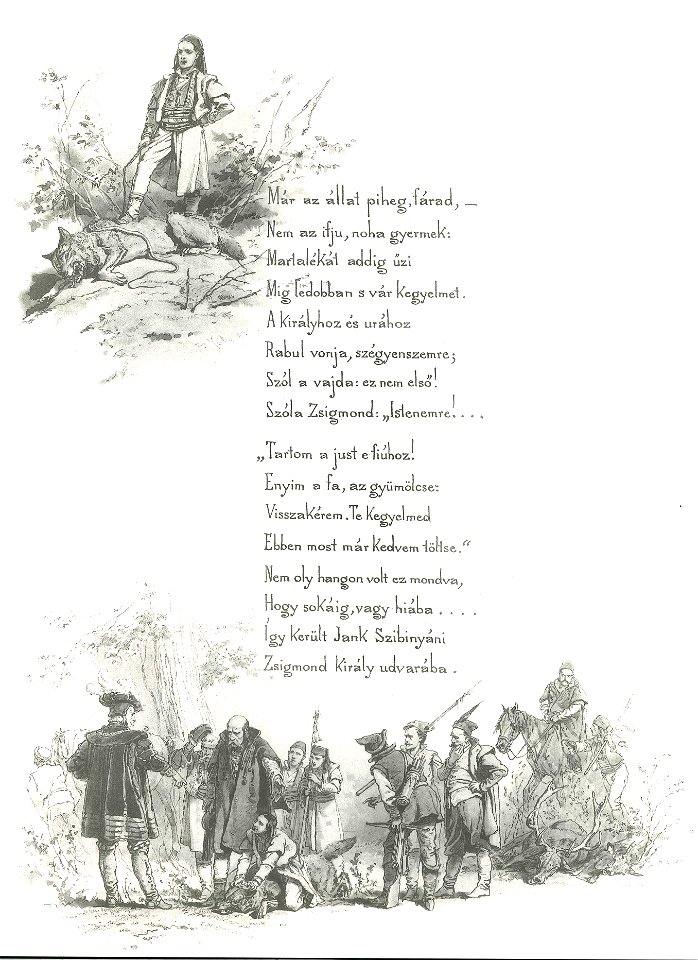 Már az állat piheg, fárad, —
Nem az ifju, noha gyermek:
Martalékát addig űzi
Mig ledobban s vár kegyelmet.
A királyhoz és urához
Rabul vonja, szégyenszemre;
Szól a vajda: ez nem első!
Szóla Zsigmond: „Istenemre! . . . .
„Tartom a just e fiúhoz!
Enyim a fa, az gyümölcse:
Visszakérem. Te kegyelmed
Ebben most már kedvem töltse.“
Nem oly hangon volt ez mondva,
Hogy sokáig, vagy hiába . . . .
Így került Jank Szibinyáni
Zsigmond király udvarába .